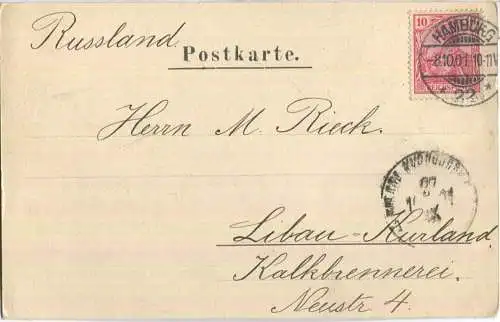 Russland.
Postkarte.
10
HAMBURG
-8.10.01.10-11V
* 22 *
Herrn M. Rieck.
Libau-Kurland
Kalkbrennerei.
Neustr 4.